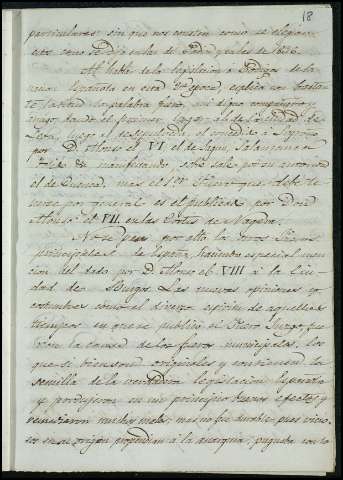 18
particulares sin que nos conste como se eligieron
esto como se dió en las de Madrid y celes de 1626.
Al hablar de la legislacion ó Codigos de la
nacion Española en esta 2ª epoca, explica con bastante
la palabra fuero, mi digno compañero y
amigo dando el primer lugar al de la ciudad de
Leon, luego al de Sepulveda, el concedido á Logroño
por D. Alonso el VI el de Sayú, Salamanca
&c. &c. manifestando, sobre sale por su autoridad
el de Cuenca, mas el 1er Fuero que debe te-
nerse por general es el publicado por Don
Alonso el VII en las Cortes de Nagera.
No se pasa por alto los otros Fueros
principales de España, haciendo especial men-
cion del dado por D. Alonso el VIII á la Ciu-
dad de Burgos. Las nuevas opiniones y
costumbres como el diverso espiritu de aquellos
tiempos en que se publicó el Fuero Juzgo, fue-
ron la causa de los fueros municipales, los
que si bien son originales y contienen la
semilla de la verdadera legislacion Española
y produjeron en un principio buenos efectos y
remediaron muchos males; mas no fue durable pues vicio-
sos en su origen propendian á la anarquia, pugnaba con lo